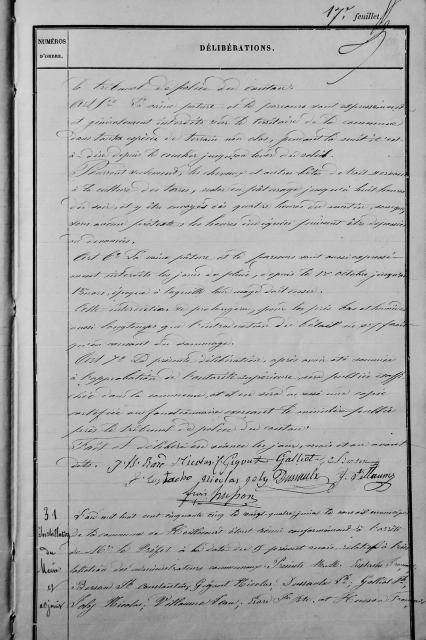 17e feuillet
NUMÉROS
D'ORDRE.
DÉLIBÉRATIONS.
le tribunal de police du canton.
Art 5e La vaine pâture et le parcours sont expressément
et généralement interdits sur le territoire de la commune
dans toute espèce de terrain non clos, pendant la nuit c'est
à dire depuis le coucher jusqu'au lever du soleil.
Pourront seulement, les chevaux et autres bêtes de trait
à la culture des terres, rester en pâturage jusqu'à huit heures
du soir, et y être envoyés dès quatre heures du matin, sans que
sous aucun prétexte les heures indiquées puissent être dépassées
ou devancées.
Art 6e La vaine pâture et le parcours sont aussi expressé
ment interdits les jours de pluie, depuis le 15 octobre jusqu'au
15 mars, époque à laquelle leur usage doit cesser.
Cette interdiction se prolongera, pour les prés bas et humides
aussi longtemps que l'introduction du bétail
causant du dommage.
Art 7e La présente délibération, après avoir été soumise
à l'approbation de l'autorité supérieure, sera publiée et affi
chée dans la commune, et il en sera adressé une copie
certifiée au fonctionnaire exerçant le ministère public
près le tribunal de police du canton.
Fait et délibéré en séance les jour, mois et an avant
dits.
Nicolas Gigout Galliot
Eustache Nicolas Joly Dussaulx J. Villaume
31
Installation
du
Maire
et
adjoint
L'an mil huit cent cinquante cinq le vingt quatre juin le conseil municipal
de la commune de étant réuni conformément à l'arrêté
de Mr le Préfet à la date du présent mois, relatif à l'ins
tallation des administrateurs communaux, Présents M.M. Eustache
Constantin, Gigout Nicolas, Dussaulx Galliot
Joly Nicolas, Villaume Jean, et Husson François